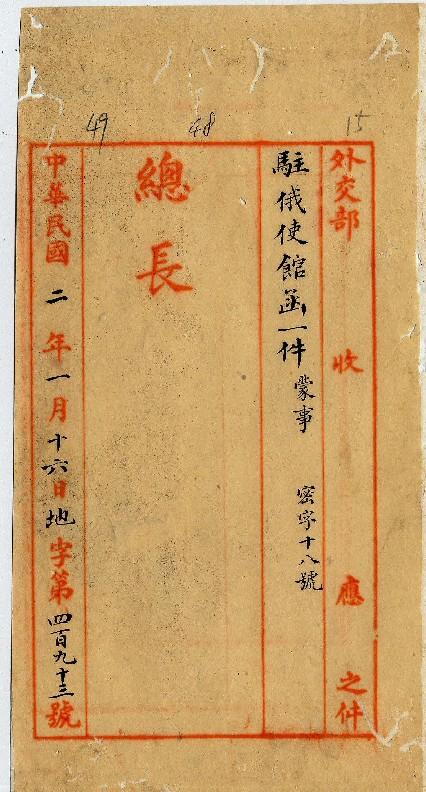 15
48
49
外交部 收 應 之件
駐俄使館函一件 蒙事 密字十八號
總長
中華民國二年一月十六日地字第四百九十三號